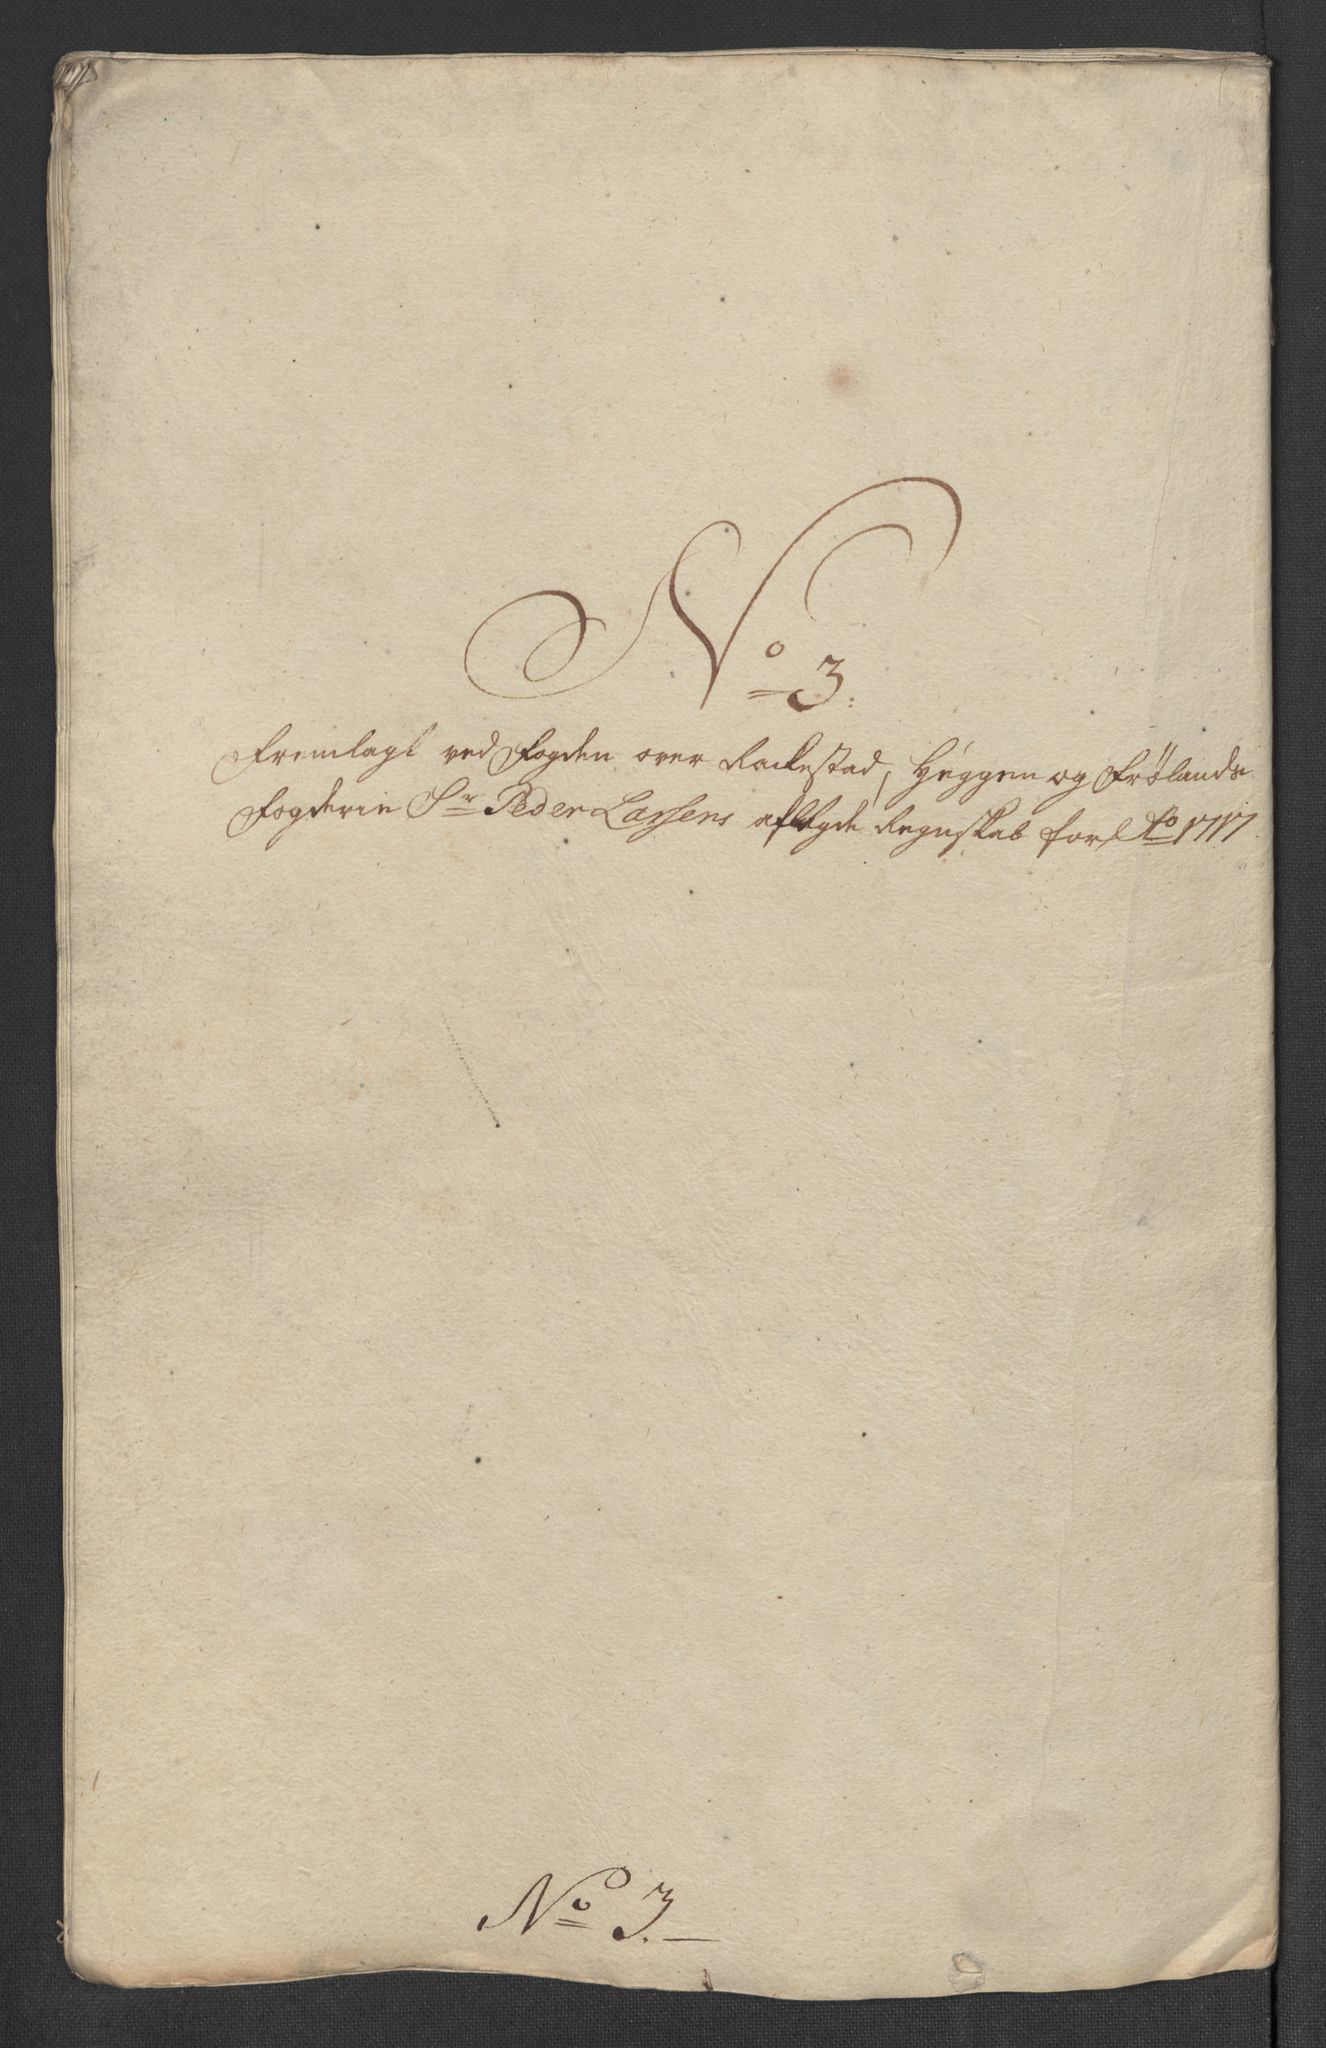 No 3.
Fremlagt ved Fogden over Rackestad, Heggen og Frølands
Fogderie Sr Peder Lassens aflagde Regnskab for Ao 1717
No 3.